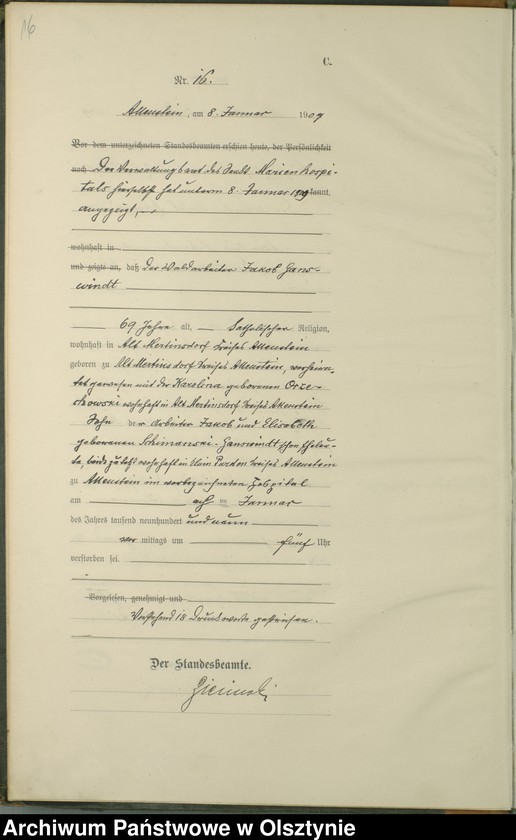 16
C.
Nr. 16.
Allenstein, am 8. Januar 1909
Vor dem unterzeichneten Standesbeamten erschien heute, der Persönlichkeit
nach Die Verwaltung des Sankt Marien Hospi-
tals hierselbst hat unterm 8. Januar 1909 kannt,
angezeigt,
wohnhaft in
und zeigte an, daß der Waldarbeiter Jakob Gans-
windt
69 Jahre alt, katholischer Religion,
wohnhaft in Alt Mertinsdorf Kreises Allenstein
geboren zu Alt Mertinsdorf Kreises Allenstein, verheira-
tet gewesen mit der Karolina geborenen Orze-
chowski wohnhaft in Alt Mertinsdorf Kreises Allenstein
Sohn der Arbeiter Jakob und Elisabeth
geborenen Schimanski-Ganswindtschen Eheleu-
te, beide zuletzt wohnhaft in Klein Purden Kreises Allenstein
zu Allenstein im vorbezeichneten Hospital
am acht en Januar
des Jahres tausend neunhundert und neun
vor mittags um fünf Uhr
verstorben sei.
Vorgelesen, genehmigt und
Vorstehend 18 Druckworte gestrichen.
Der Standesbeamte.
Archiwum Państwowe w Olsztynie